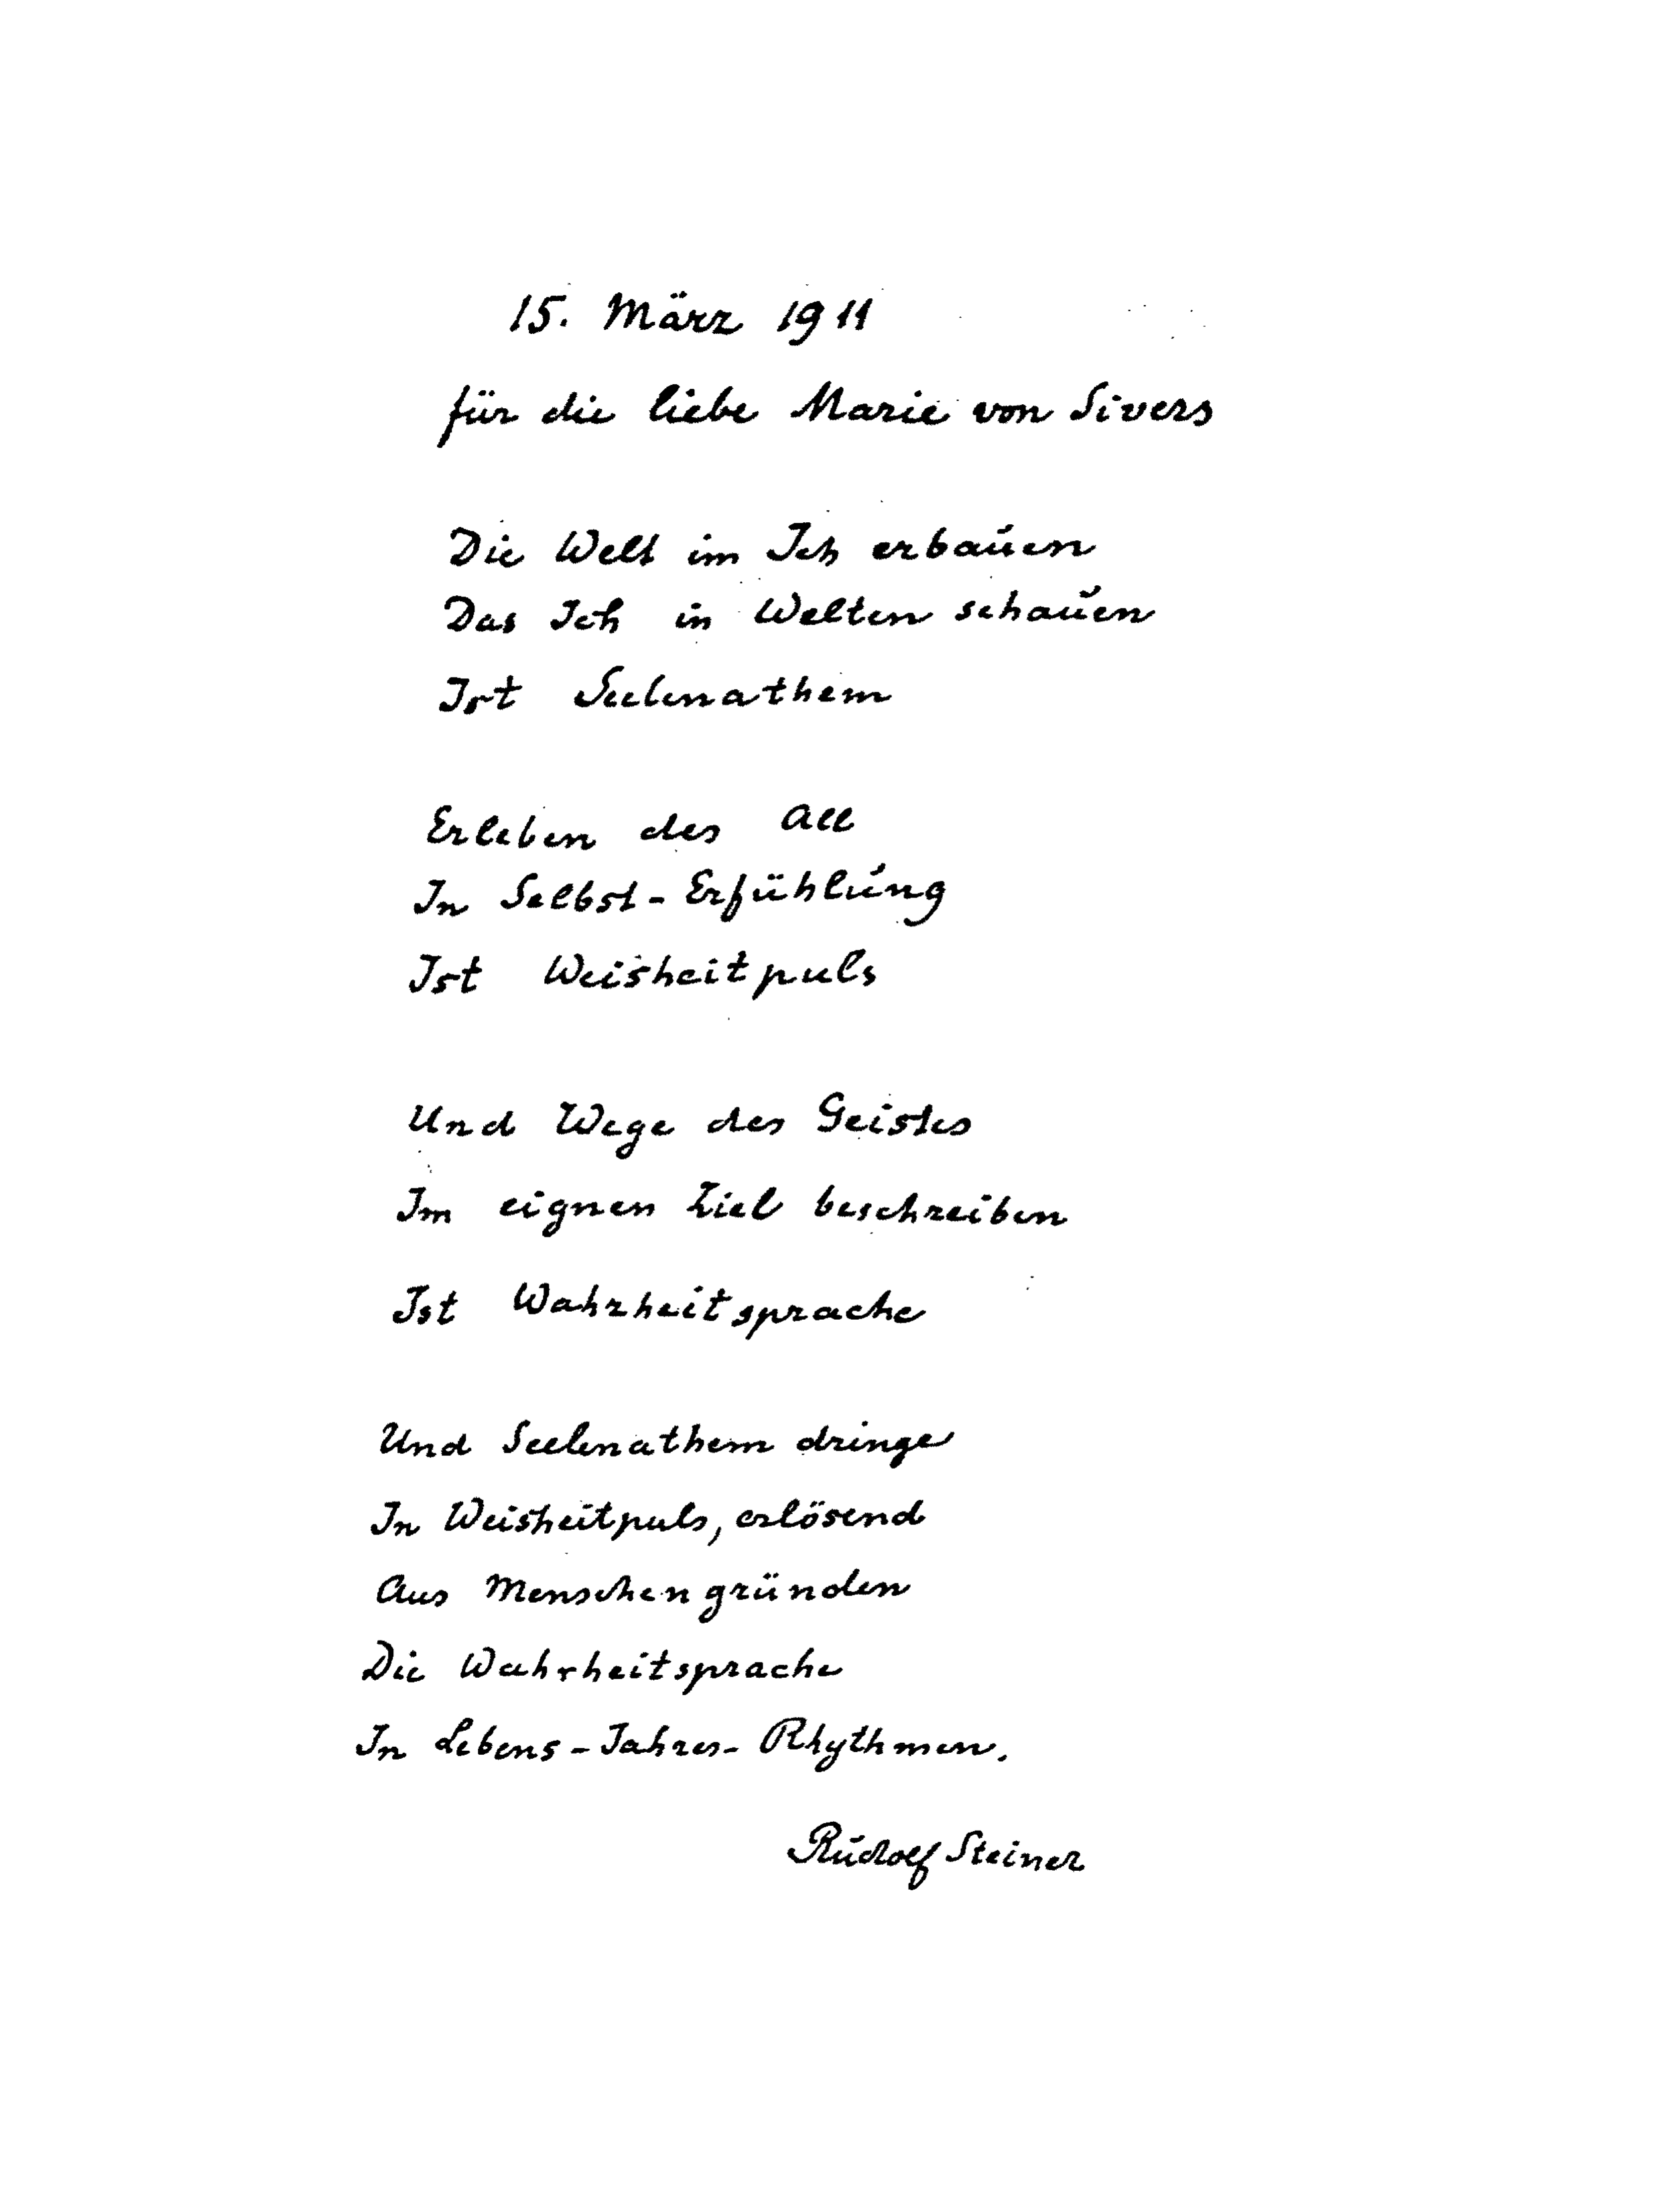 15. März 1911
für die liebe Marie von Sivers
Die Welt im Ich erbauen
Das Ich in Welten schauen
Ist Seelenathem
Erleben des All
In Selbst-Erfühlung
Ist Weisheitpuls
Und Wege des Geistes
Im eignen Ziel beschreiben
Ist Wahrheitsprache
Und Seelenathem dringe
In Weisheitpuls, erlösend
Aus Menschengründen
Die Wahrheitsprache
In Lebens-Jahres-Rhythmen.
Rudolf Steiner